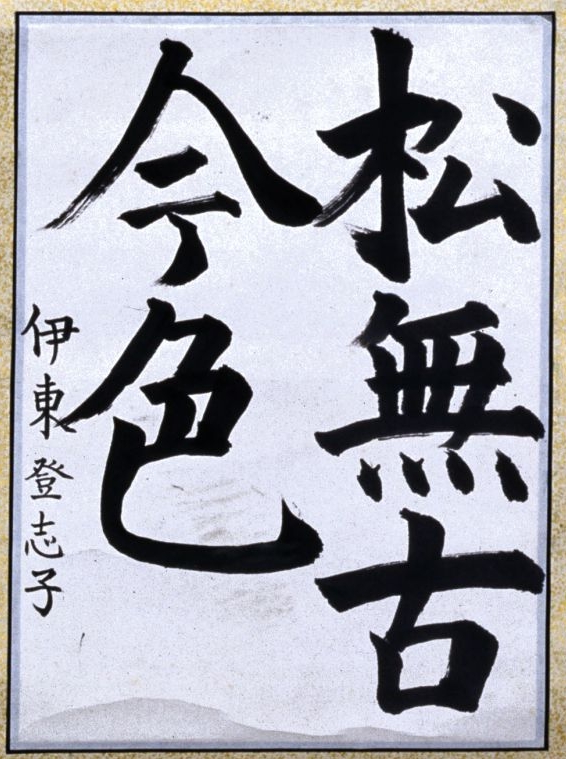 松無古
今色
伊東登志子